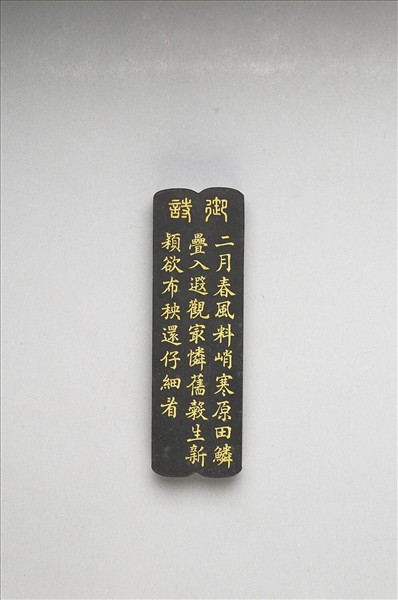 御詩
二月春風料峭寒原田鱗
疊入遐觀㝡憐舊穀生新
穎欲布秧還仔細看